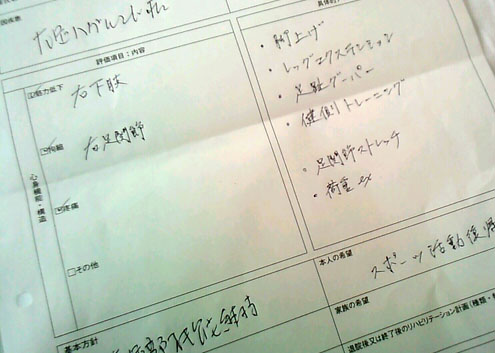 因疾患
右足
評価項目：内容
具体的
心身機能・構造
筋力低下
右下肢
拘縮
右足関節
疼痛
その他
・脚上げ
・レッグエクステンション
・足趾グーパー
・健側トレーニング
・足関節ストレッチ
・荷重ex
本人の希望
スポーツ活動復帰
家族の希望
基本方針
維持
退院後又は終了後のリハビリテーション計画（種類・